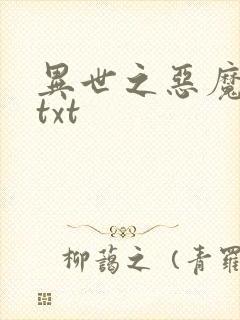 異世之惡魔
txt
柳藹之（青羅